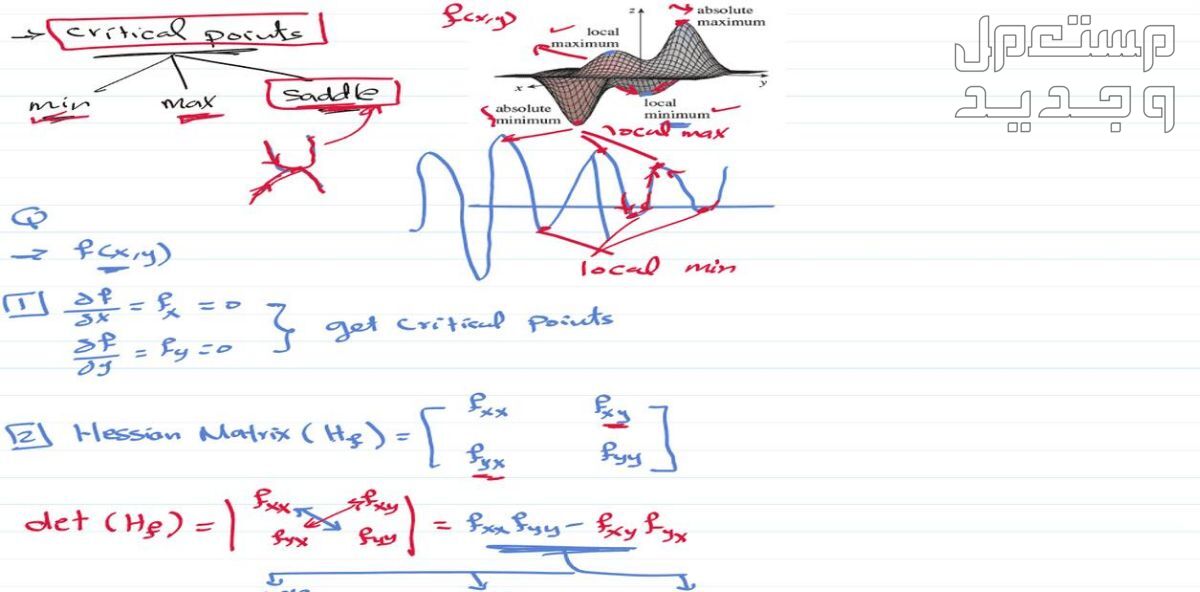 → critical points
min max saddle
f(x,y)
z
absolute
maximum
local
maximum
x
y
absolute
minimum
local
minimum
local max
local min
مستعمل
وجديد
Q
→ f(x,y)
1 ∂f/∂x = fx = 0
∂f/∂y = fy = 0
} get critical points
2 Hessian Matrix (Hf) = [ fxx fxy
fyx fyy ]
det (Hf) = | fxx fxy
fyx fyy | = fxx fyy - fxy fyx